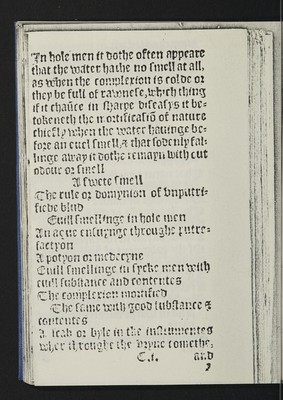 In hole men it dothe often appeare
that the water hathe no smell at all,
as when the complexion is colde or
they be full of rawnese, which thing
if it chaūce in sharpe diseasys it be-
tokeneth the mortificasiō of nature
chiefly when the water hauinge be-
fore an euel smell, & that sodenly fal-
linge away it dothe remayn with out
odour or smell
A swete smell
The rule or dominyon of vnputri-
fiede blud
Euill smellinge in hole men
An ague ensuynge throughe putre-
factyon
A potyon or medecyne
Euill smellinge in sycke men with
euill substance and contentes
The complexion mortified
The same with good substance &
contentes
A scab or byle in the instrumentes
wher throughe the vryne comethe,
C.i. and